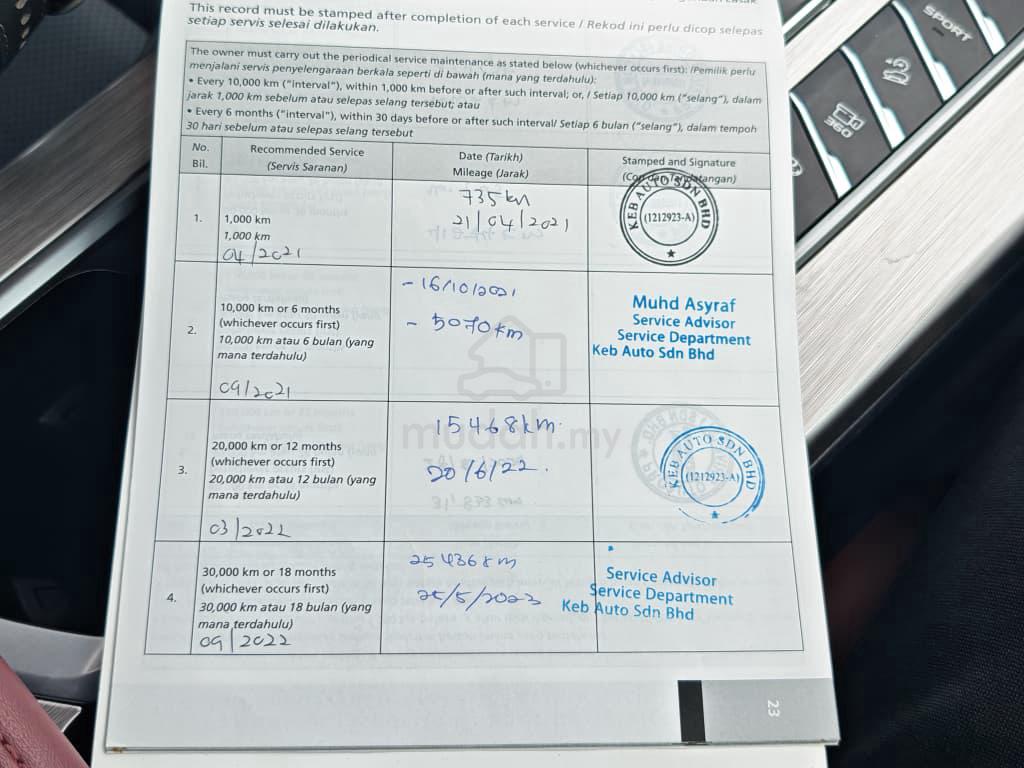 This record must be stamped after completion of each service / Rekod ini perlu dicop selepas
setiap servis selesai dilakukan.
The owner must carry out the periodical service maintenance as stated below (whichever occurs first): /Pemilik perlu
menjalani servis penyelengaraan berkala seperti di bawah (mana yang terdahulu):
• Every 10,000 km ("interval"), within 1,000 km before or after such interval; or, / Setiap 10,000 km ("selang"), dalam
jarak 1,000 km sebelum atau selepas selang tersebut; atau
• Every 6 months ("interval"), within 30 days before or after such interval/ Setiap 6 bulan ("selang"), dalam tempoh
30 hari sebelum atau selepas selang tersebut
No.
Bil.
Recommended Service
(Servis Saranan)
Date (Tarikh)
Mileage (Jarak)
Stamped and Signature
(Cop dan Tandatangan)
1.
1,000 km
1,000 km
04/2021
735km
21/04/2021
KEB AUTO SDN BHD
(1212923-A)
2.
10,000 km or 6 months
(whichever occurs first)
10,000 km atau 6 bulan (yang
mana terdahulu)
09/2021
- 16/10/2021
- 5070km
Muhd Asyraf
Service Advisor
Service Department
Keb Auto Sdn Bhd
3.
20,000 km or 12 months
(whichever occurs first)
20,000 km atau 12 bulan (yang
mana terdahulu)
03/2022
15468km.
20/6/22.
KEB AUTO SDN BHD
(1212923-A)
4.
30,000 km or 18 months
(whichever occurs first)
30,000 km atau 18 bulan (yang
mana terdahulu)
09/2022
25436km
25/5/2023
Service Advisor
Service Department
Keb Auto Sdn Bhd
23
SPORT
360
mudah.my